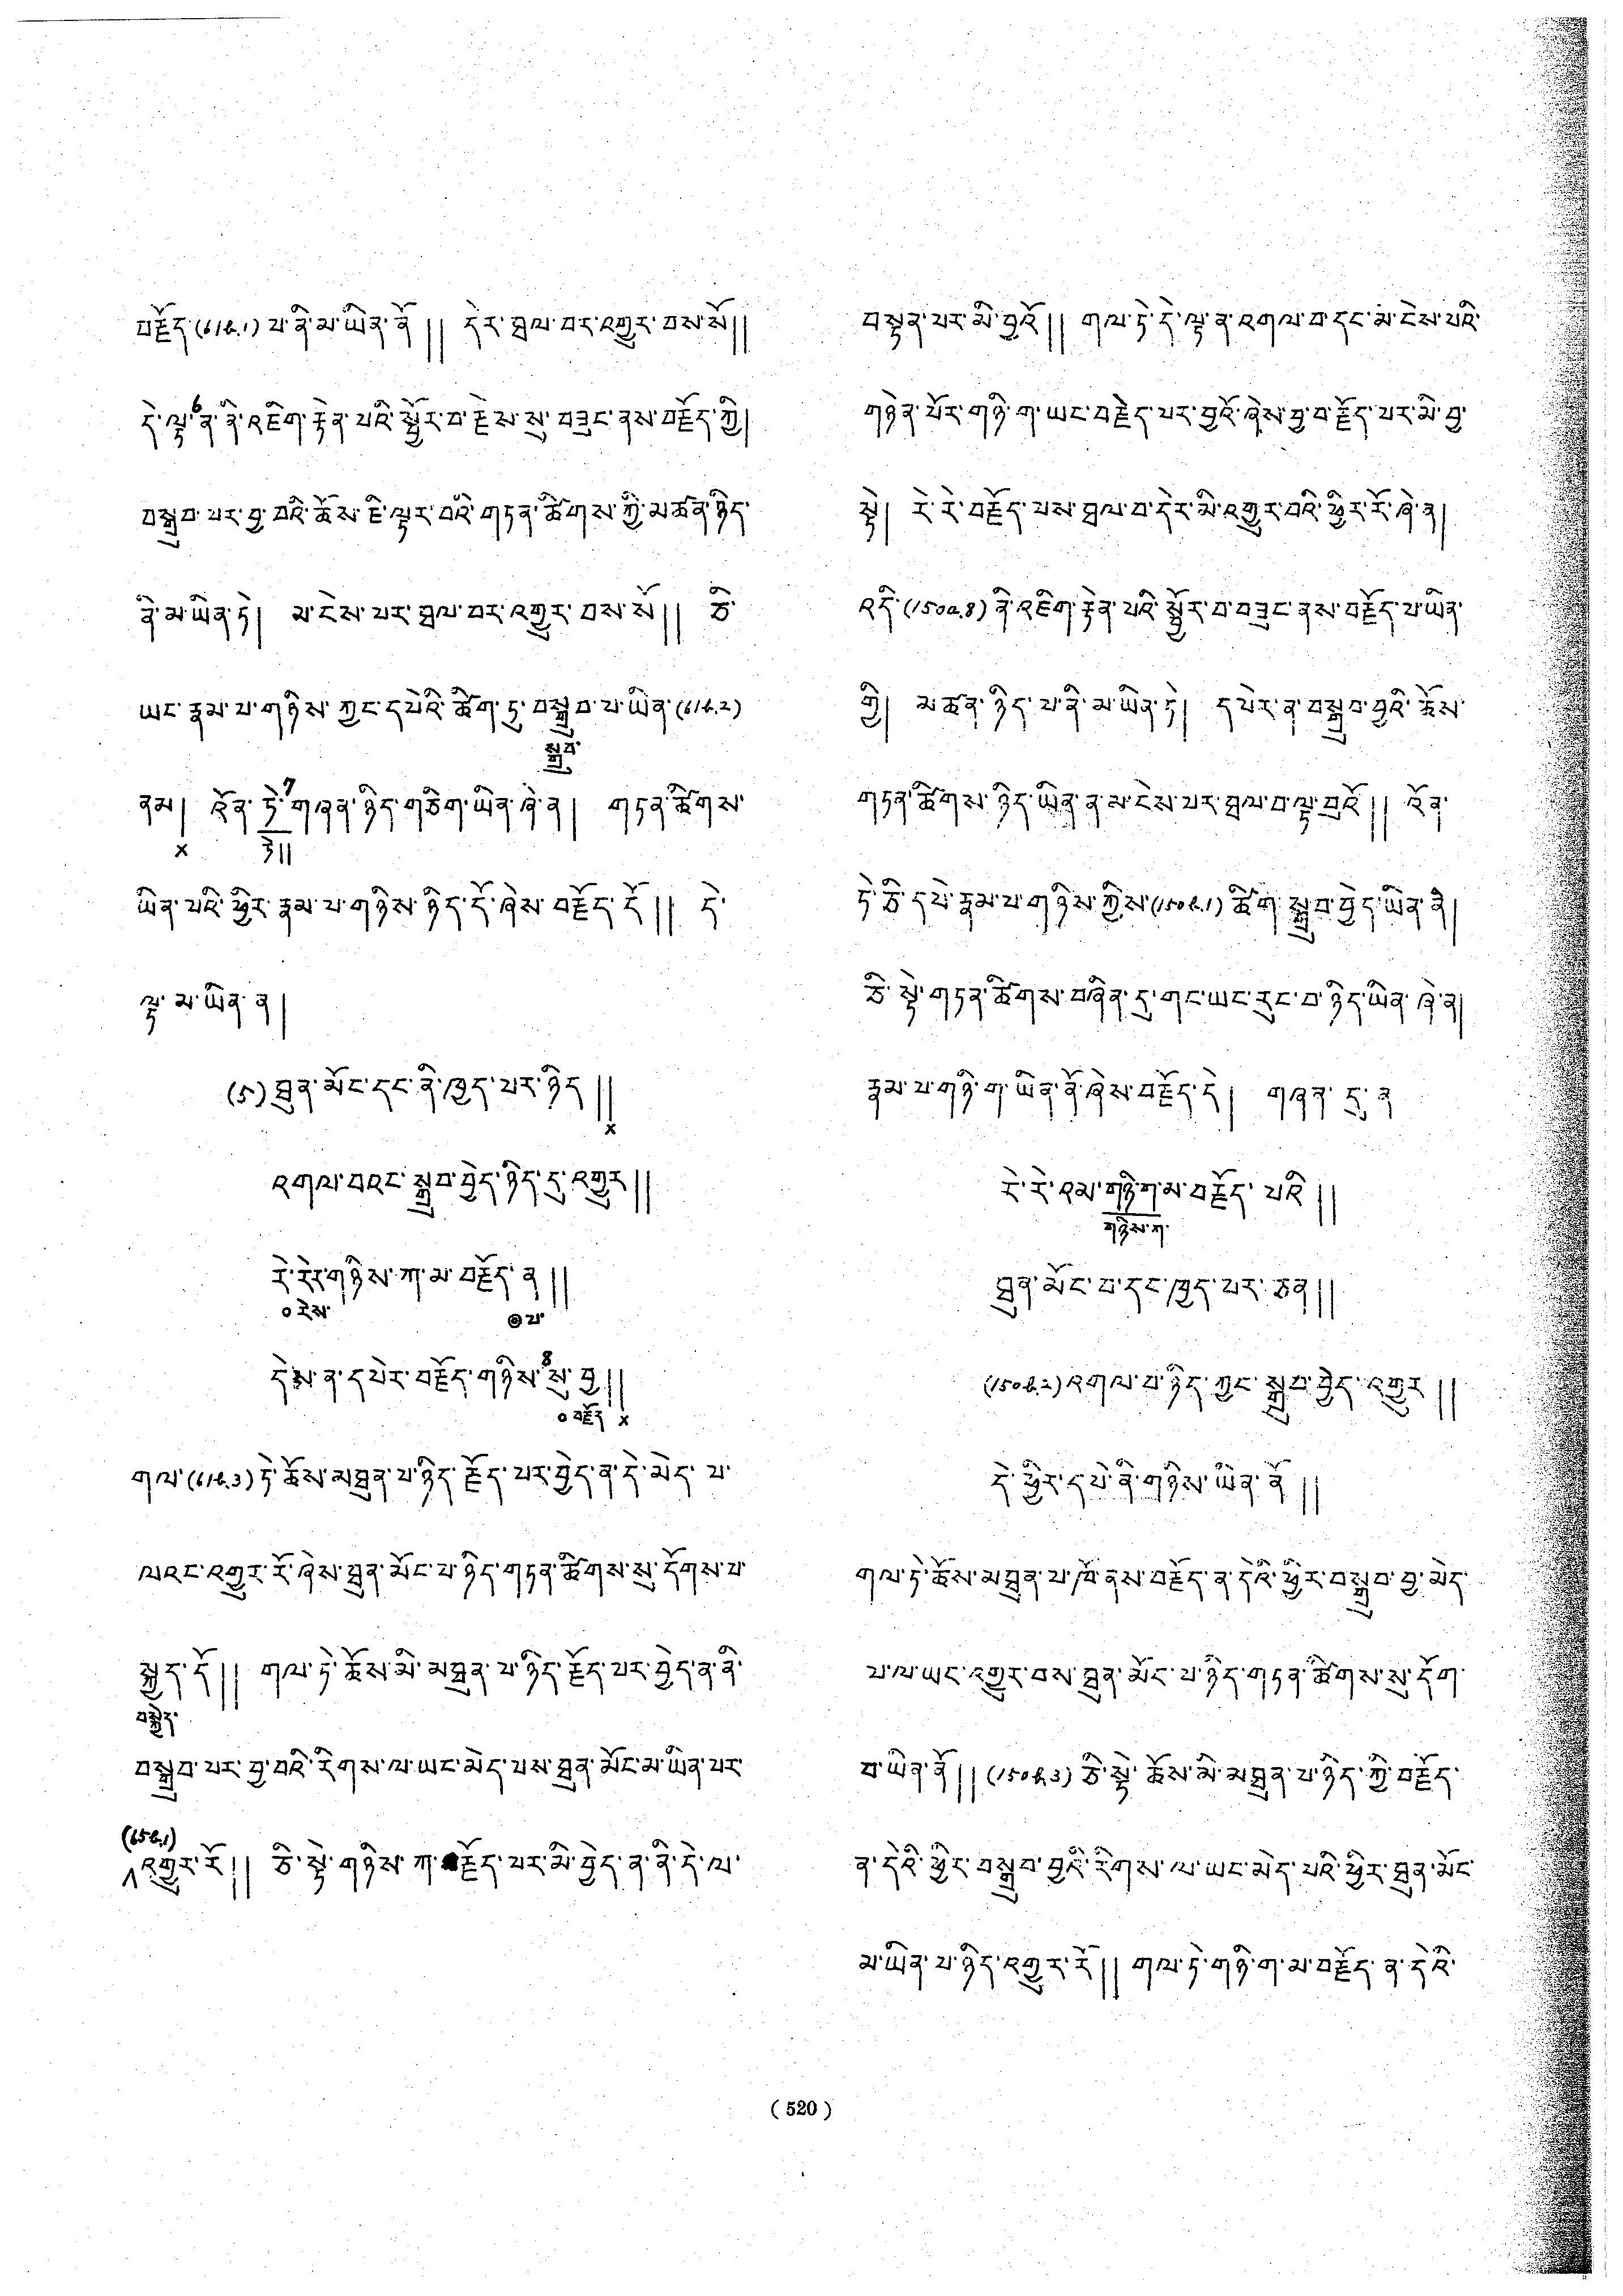 བརྗོད་(61b.1)པ་ནི་མ་ཡིན་ནོ།། དེར་ཐལ་བར་འགྱུར་བས་སོ།།
དེ་ལྟ་6ན་ནི་འཇིག་རྟེན་པའི་སྦྱོར་བ་རྗེས་སུ་བཟུང་ནས་བརྗོད་ཀྱི།
བསྒྲུབ་པར་བྱ་བའི་ཆོས་ཇི་ལྟར་བའི་གཏན་ཚིགས་ཀྱི་མཚན་ཉིད་
ནི་མ་ཡིན་ཏེ། མ་ངེས་པར་ཐལ་བར་འགྱུར་བས་སོ།། ཅི་
ཡང་རྣམ་པ་གཉིས་ཀྱང་དཔེའི་ཚིག་ཏུ་བསྒྲུབ་པ་ཡིན་(61b.2)
སྒྲུབ་
ནམ། འོན་ཏེ་7གཞན་ཉིད་གཅིག་ཡིན་ཞེ་ན། གཏན་ཚིགས་
x ཏེ།།
ཡིན་པའི་ཕྱིར་རྣམ་པ་གཉིས་ཉིད་དོ་ཞེས་བརྗོད་དོ།། དེ་
ལྟ་མ་ཡིན་ན།
(5)ཐུན་མོང་དང་ནི་ཁྱད་པར་ཉིད།།
x
འགལ་བའང་སྒྲུབ་བྱེད་ཉིད་དུ་འགྱུར།།
རེ་རེར་གཉིས་ཀ་མ་བརྗོད་ན།།
○རེས་ ◎པ་
དེས་ན་དཔེར་བརྗོད་གཉིས་8སུ་བྱ།།
○བརྗོད x
གལ་(61b.3)ཏེ་ཆོས་མཐུན་པ་ཉིད་རྗོད་པར་བྱེད་ན་དེ་མེད་པ་
ལའང་འགྱུར་རོ་ཞེས་ཐུན་མོང་པ་ཉིད་གཏན་ཚིགས་སུ་དོགས་པ་
སྐྱད་དོ།། གལ་ཏེ་ཆོས་མི་མཐུན་པ་ཉིད་རྗོད་པར་བྱེད་ན་ནི་
བསྐྱེད་
བསྒྲུབ་པར་བྱ་བའི་རིགས་ལ་ཡང་མེད་པས་ཐུན་མོང་མ་ཡིན་པར་
(65b.1)
འགྱུར་རོ།། ཅི་སྟེ་གཉིས་ཀ་རྗོད་པར་མི་བྱེད་ན་ནི་དེ་ལ་
བསྟན་པར་མི་བྱའོ།། གལ་ཏེ་དེ་ལྟ་ན་འགལ་བ་དང་མ་ངེས་པའི་
གཉེན་པོར་གཉི་ག་ཡང་བརྗེད་པར་བྱའོ་ཞེས་བྱ་བ་རྗོད་པར་མི་བྱ་
སྟེ། རེ་རེ་བརྗོད་པས་ཐལ་བ་དེར་མི་འགྱུར་བའི་ཕྱིར་རོ་ཞེ་ན།
འདི་(150a.8)ནི་འཇིག་རྟེན་པའི་སྦྱོར་བ་བཟུང་ནས་བརྗོད་པ་ཡིན་
གྱི། མཚན་ཉིད་པ་ནི་མ་ཡིན་ཏེ། དཔེར་ན་བསྒྲུབ་བྱའི་ཆོས་
གཏན་ཚིགས་ཉིད་ཡིན་ན་མ་ངེས་པར་ཐལ་བ་ལྟ་བུའོ།། འོན་
ཏེ་ཅི་དཔེ་རྣམ་པ་གཉིས་ཀྱིས་(150b.1)ཚིག་སྒྲུབ་བྱེད་ཡིན་ནི།
ཅི་སྟེ་གཏན་ཚིགས་བཞིན་དུ་གང་ཡང་རུང་བ་ཉིད་ཡིན་ཞེ་ན།
རྣམ་པ་གཉི་ག་ཡིན་ནོ་ཞེས་བརྗོད་དེ། གཞན་དུ་ན
རེ་རེ་འམ་གཉི་ག་མ་བརྗོད་པའི།།
གཉིས་ཀ་
ཐུན་མོང་བ་དང་ཁྱད་པར་ཅན།།
(150b.2)འགལ་བ་ཉིད་ཀྱང་སྒྲུབ་བྱེད་འགྱུར།།
དེ་ཕྱིར་དཔེ་ནི་གཉིས་ཡིན་ནོ།།
གལ་ཏེ་ཆོས་མཐུན་པ་ཁོ་ནས་བརྗོད་ན་དེའི་ཕྱིར་བསྒྲུབ་བྱ་མེད་
པ་ལ་ཡང་འགྱུར་བས་ཐུན་མོང་པ་ཉིད་གཏན་ཚིགས་སུ་དོག་
བ་ཡིན་ནོ།།(150b.3)ཅི་སྟེ་ཆོས་མི་མཐུན་པ་ཉིད་ཀྱི་བརྗོད་
ན་དེའི་ཕྱིར་བསྒྲུབ་བྱའི་རིགས་ལ་ཡང་མེད་པའི་ཕྱིར་ཐུན་མོང་
མ་ཡིན་པ་ཉིད་འགྱུར་རོ།། གལ་ཏེ་གཉི་ག་མ་བརྗོད་ན་དེའི་
(520)